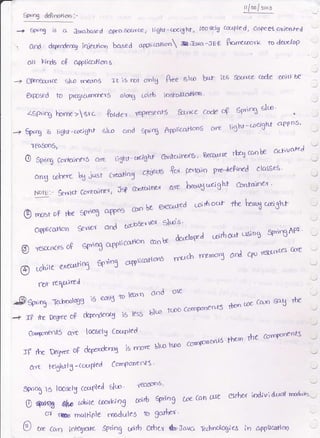 11/20/2013
Spring definition:-
→ Spring is a Javabased open source, light-weight, loosely coupled, aspect oriented
and dependency Injection based application \ Java-JEE framework to develop
all kinds of applications.
→ Opensource s/w means It is not only free s/w but its source code will be
exposed to programmers along with installation.
<Spring home>\src folder represents source code of Spring s/w.
→ Spring is light-weight s/w and spring Applications are light-weight appns,
reasons,
① Spring containers are light-weight containers. Because they can be activated
any where by just creating objects for certain pre-defined classes.
Note:- Servlet Container, Jsp container are heavyweight container.
② most of the spring appns can be executed without the heavy weight
application server and webserver s/w's.
③ resources of spring application can be developed without using Spring Api.
④ while executing Spring applications much memory and cpu resources are
not required
Spring Technology is easy to learn and use
→ If the Degree of dependency is less b/w two components then we can say the
components are loosely coupled.
If the Degree of dependency is more b/w two components then the components
are teightly-coupled components.
Spring is loosely coupled s/w. reasons,
① while working with Spring we can use either individual module
or multiple modules to gather.
② we can integrate Spring with other Java Technologies in application